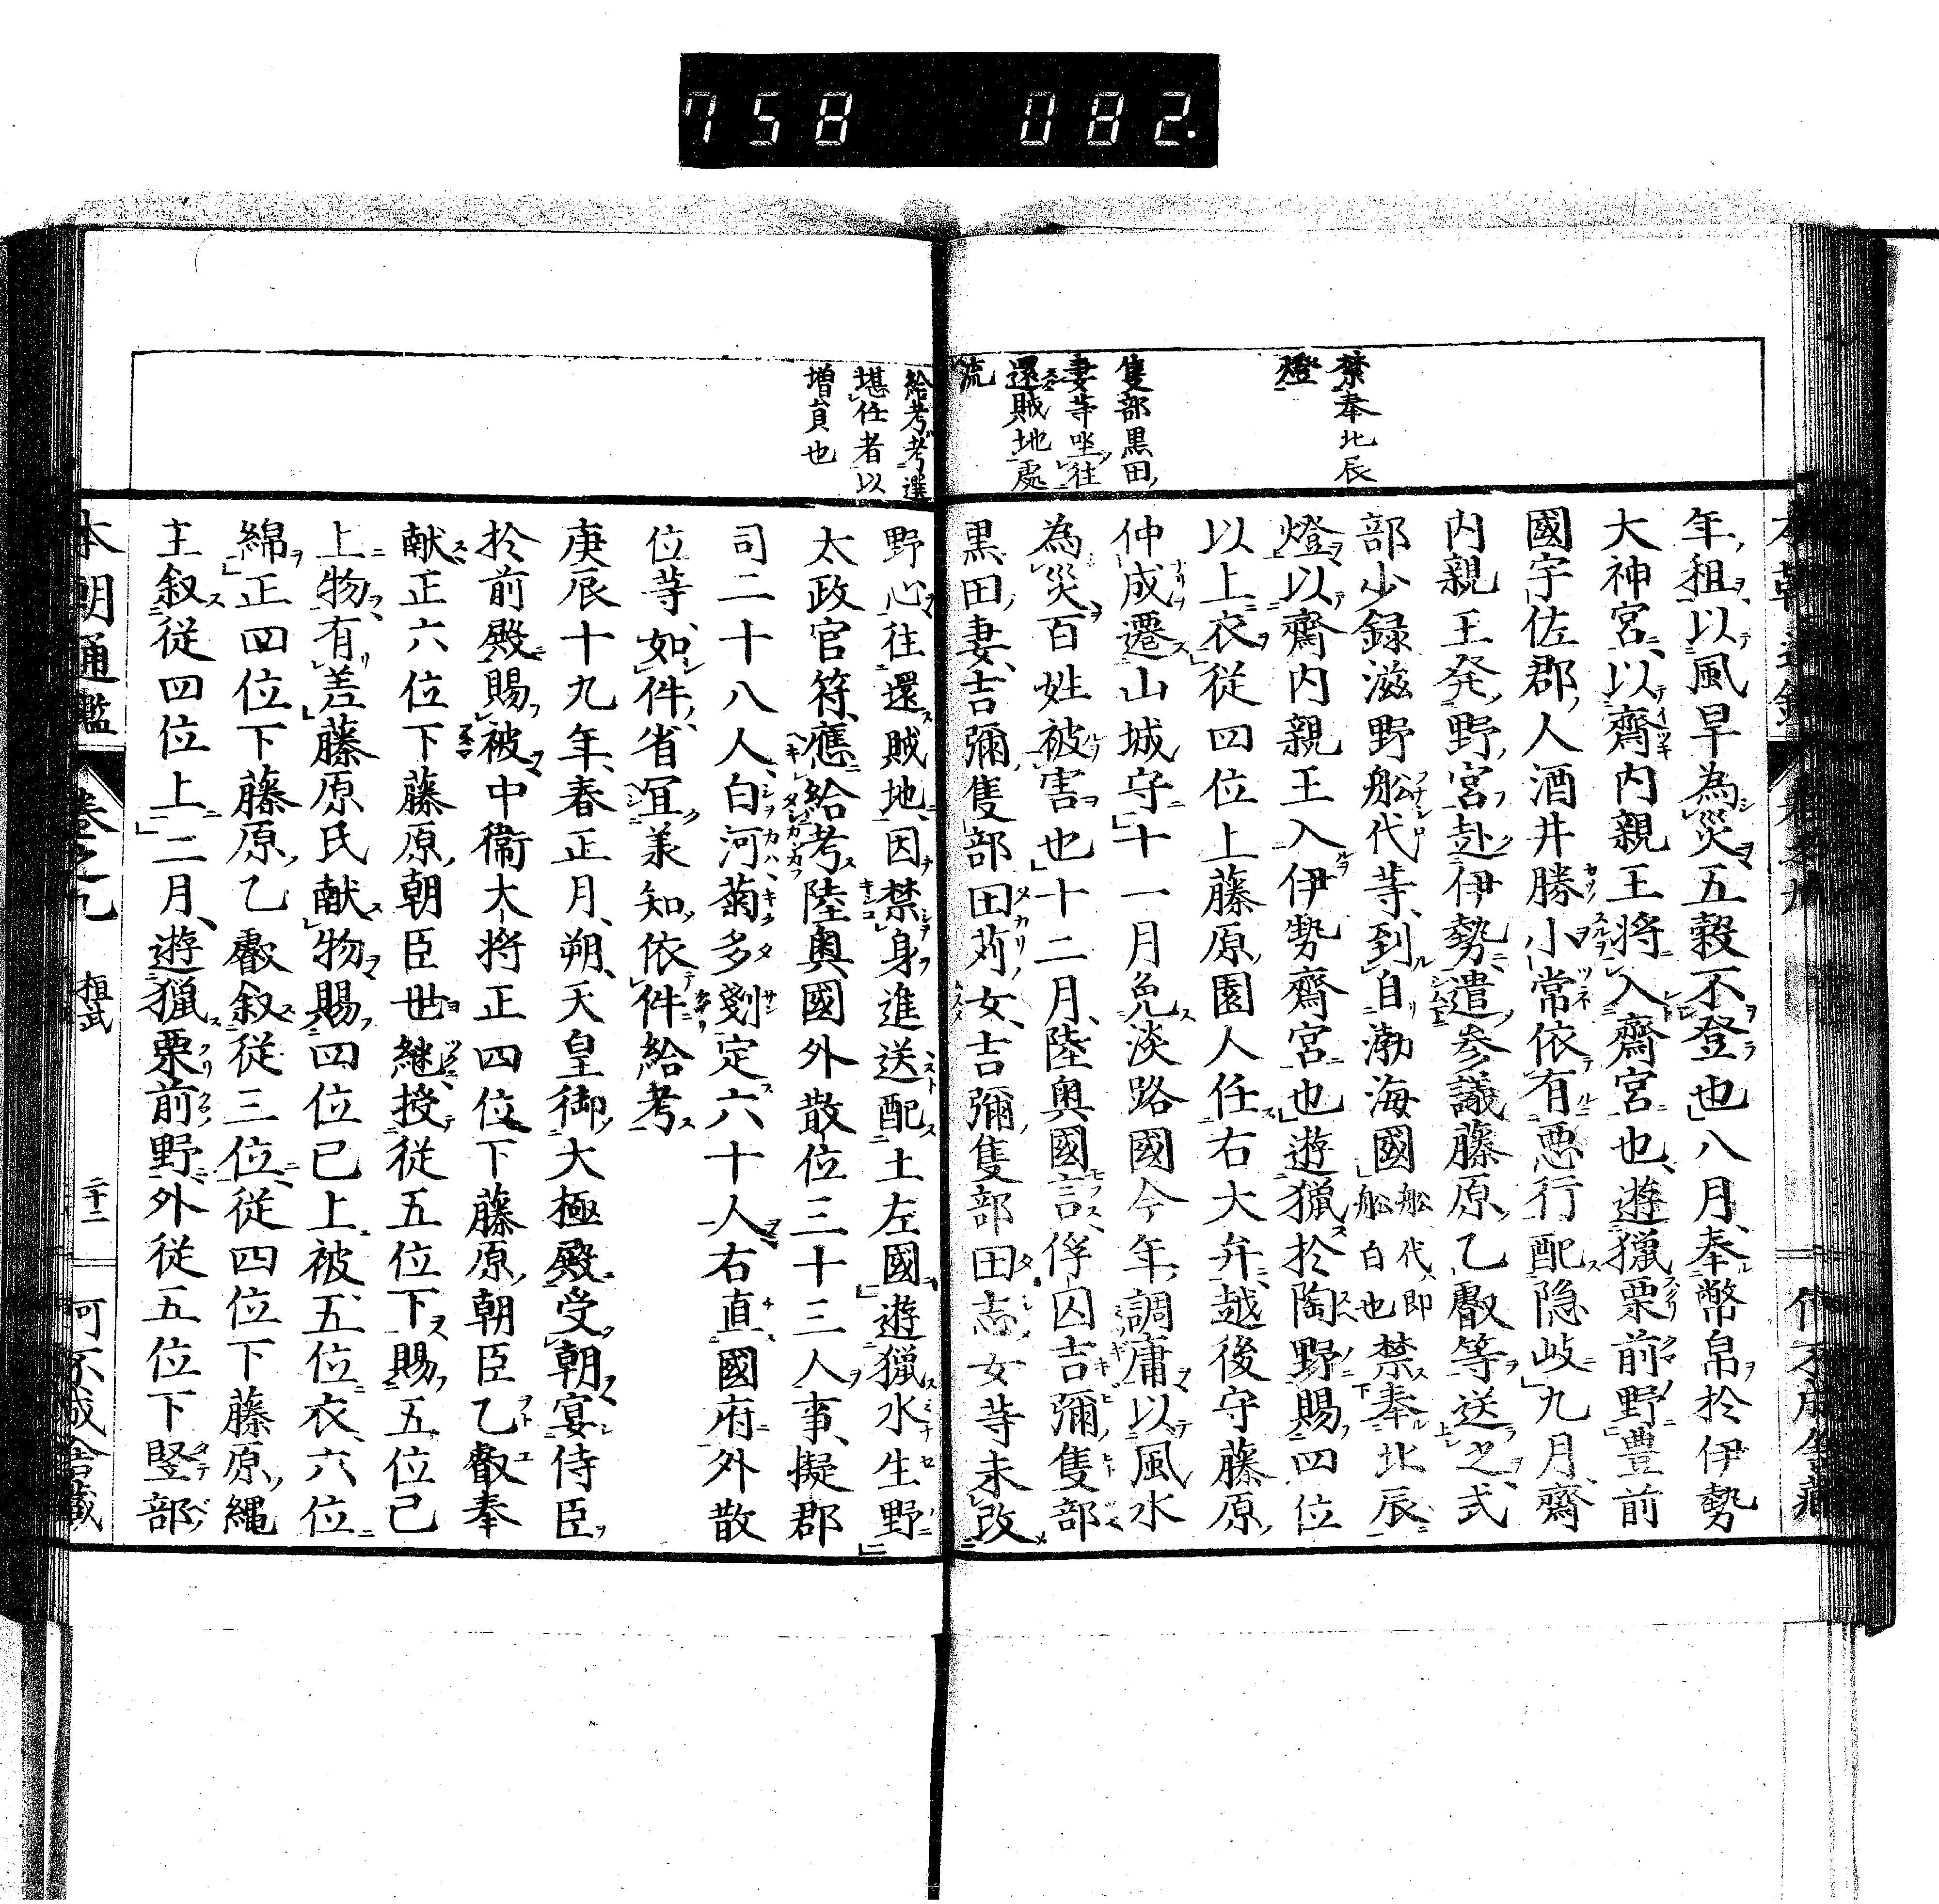 758 082.
禁奉北辰
燈
隻部黒田
妻等坐往
還賊地處
流
年租以風旱為災五穀不登也八月奉幣帛於伊勢
大神宮以齋内親王將入齋宮也遊獵栗前野豊前
國宇佐郡人酒井勝小常依有悪行配隠岐九月齋
内親王発野宮赴伊勢遣参議藤原乙叡等送之式
部少録滋野船代等到自渤海國船代即船白也禁奉北辰
燈以齋内親王入伊勢齋宮也遊獵於陶野賜四位
以上衣従四位上藤原園人任右大弁越後守藤原
仲成遷山城守十一月免淡路國今年調庸以風水
為災百姓被害也十二月陸奥國言俘囚吉彌隻部
黒田妻吉彌隻部田苅女吉彌隻部田志女等未改
給考考選
堪任者以
増員也
野心往還賊地因禁身進送配土左國遊獵水生野
太政官符應給考陸奥國外散位三十三人事擬郡
司二十八人白河菊多剗定六十人右直國府外散
位等如件省冝羕知依件給考
庚辰十九年春正月朔天皇御大極殿受朝宴侍臣
於前殿賜被中衞大将正四位下藤原朝臣乙叡奉
献正六位下藤原朝臣世継授従五位下賜五位已
上物有差藤原氏献物賜四位已上被五位衣六位
綿正四位下藤原乙叡叙従三位従四位下藤原縄
主叙従四位上二月遊獵栗前野外従五位下竪部
本朝通鑑 巻之九 桓武 二十二